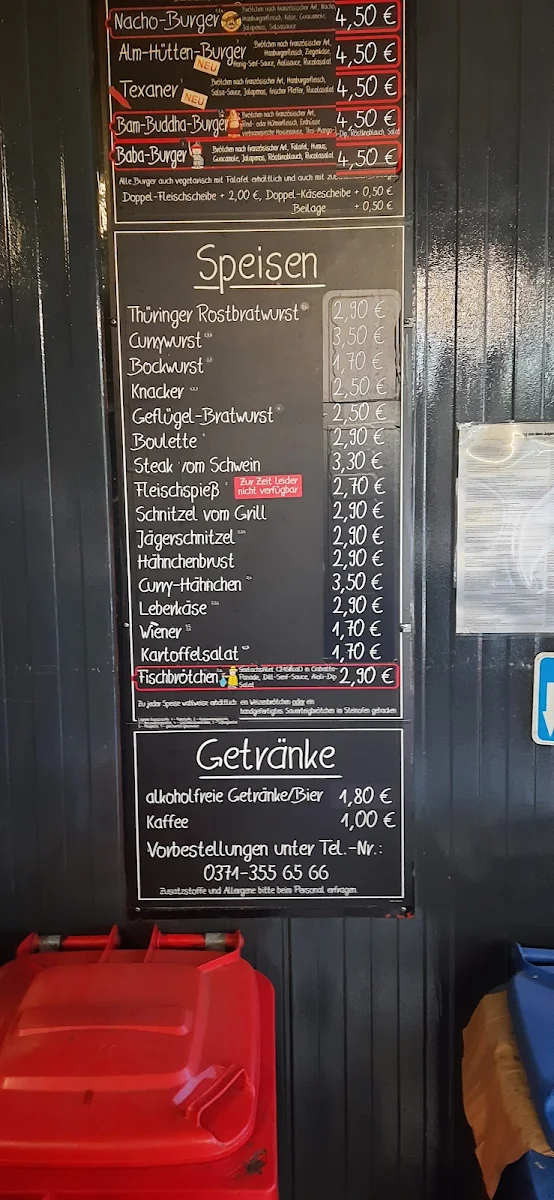 Nacho-Burger Brötchen nach französischer Art, Nacho, 4,50 €
Hamburgerfleisch, Käse, Guacamole,
Jalapenos, Salsasauce
Alm-Hütten-Burger Brötchen nach französischer Art, 4,50 €
Hamburgerfleisch, Ziegenkäse,
NEU Honig-Senf-Sauce, Rucolasalat
Texaner Brötchen nach französischer Art, Hamburgerfleisch, 4,50 €
NEU Salsa-Sauce, Jalapenos, frischer Pfeffer, Rucolasalat
Bam-Buddha-Burger Brötchen nach französischer Art, 4,50 €
Rind- oder Hühnerfleisch, Erdnüsse
vietnamesische Hoisinsauce, Thai-Mango-Dip, Röstknoblauch, Salat
Baba-Burger Brötchen nach französischer Art, Falafel, Humus, 4,50 €
Guacamole, Jalapenos, Röstknoblauch, Rucolasalat
Alle Burger auch vegetarisch mit Falafel erhältlich und auch mit
Doppel-Fleischscheibe + 2,00 €, Doppel-Käsescheibe + 0,50 €
Beilage + 0,50 €
Speisen
Thüringer Rostbratwurst 2,90 €
Currywurst 3,50 €
Bockwurst 1,70 €
Knacker 2,50 €
Geflügel-Bratwurst 2,50 €
Boulette 2,90 €
Steak vom Schwein 3,30 €
Fleischspieß Zur Zeit leider nicht verfügbar 2,70 €
Schnitzel vom Grill 2,90 €
Jägerschnitzel 2,90 €
Hähnchenbrust 2,90 €
Curry-Hähnchen 3,50 €
Leberkäse 2,90 €
Wiener 1,70 €
Kartoffelsalat 1,70 €
Fischbrötchen Seelachsfilet in Ciabatta- 2,90 €
Panade, Dill-Senf-Sauce, Aioli-Dip
Salat
Zu jeder Speise wahlweise erhältlich: ein Weizenbrötchen oder ein
handgefertigtes Sauerteigbrötchen im Steinofen gebacken
Getränke
alkoholfreie Getränke/Bier 1,80 €
Kaffee 1,00 €
Vorbestellungen unter Tel.-Nr.:
0371-355 65 66
Zusatzstoffe und Allergene bitte beim Personal erfragen.